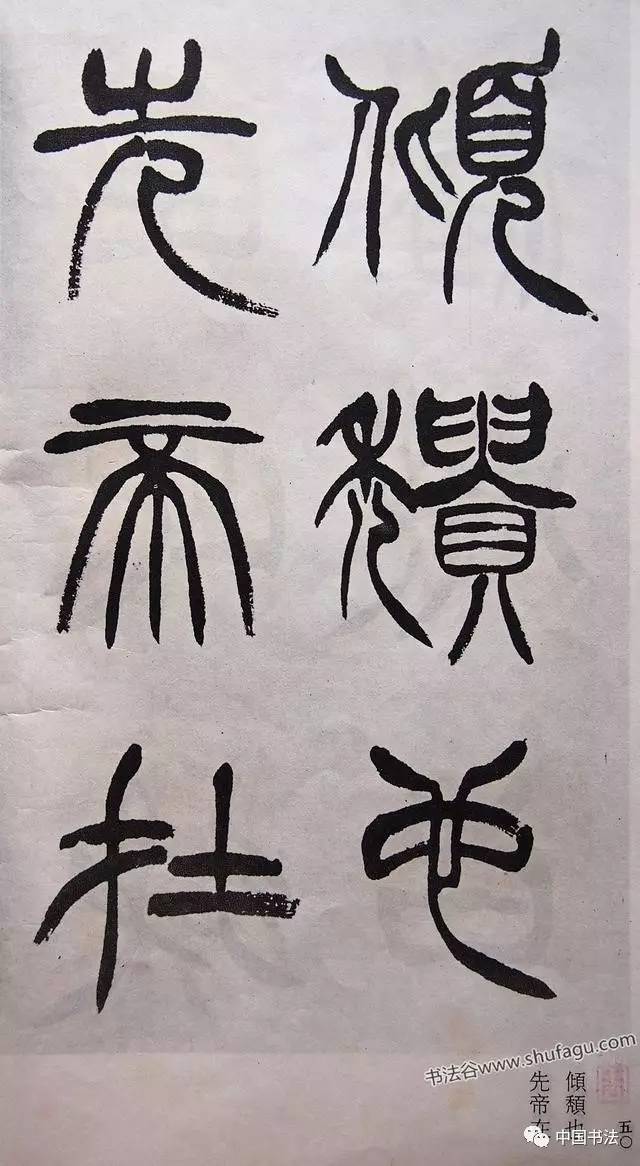 傾頹也
先帝在
书法谷www.shufagu.com
傾頹也
先帝在
五〇
中国书法